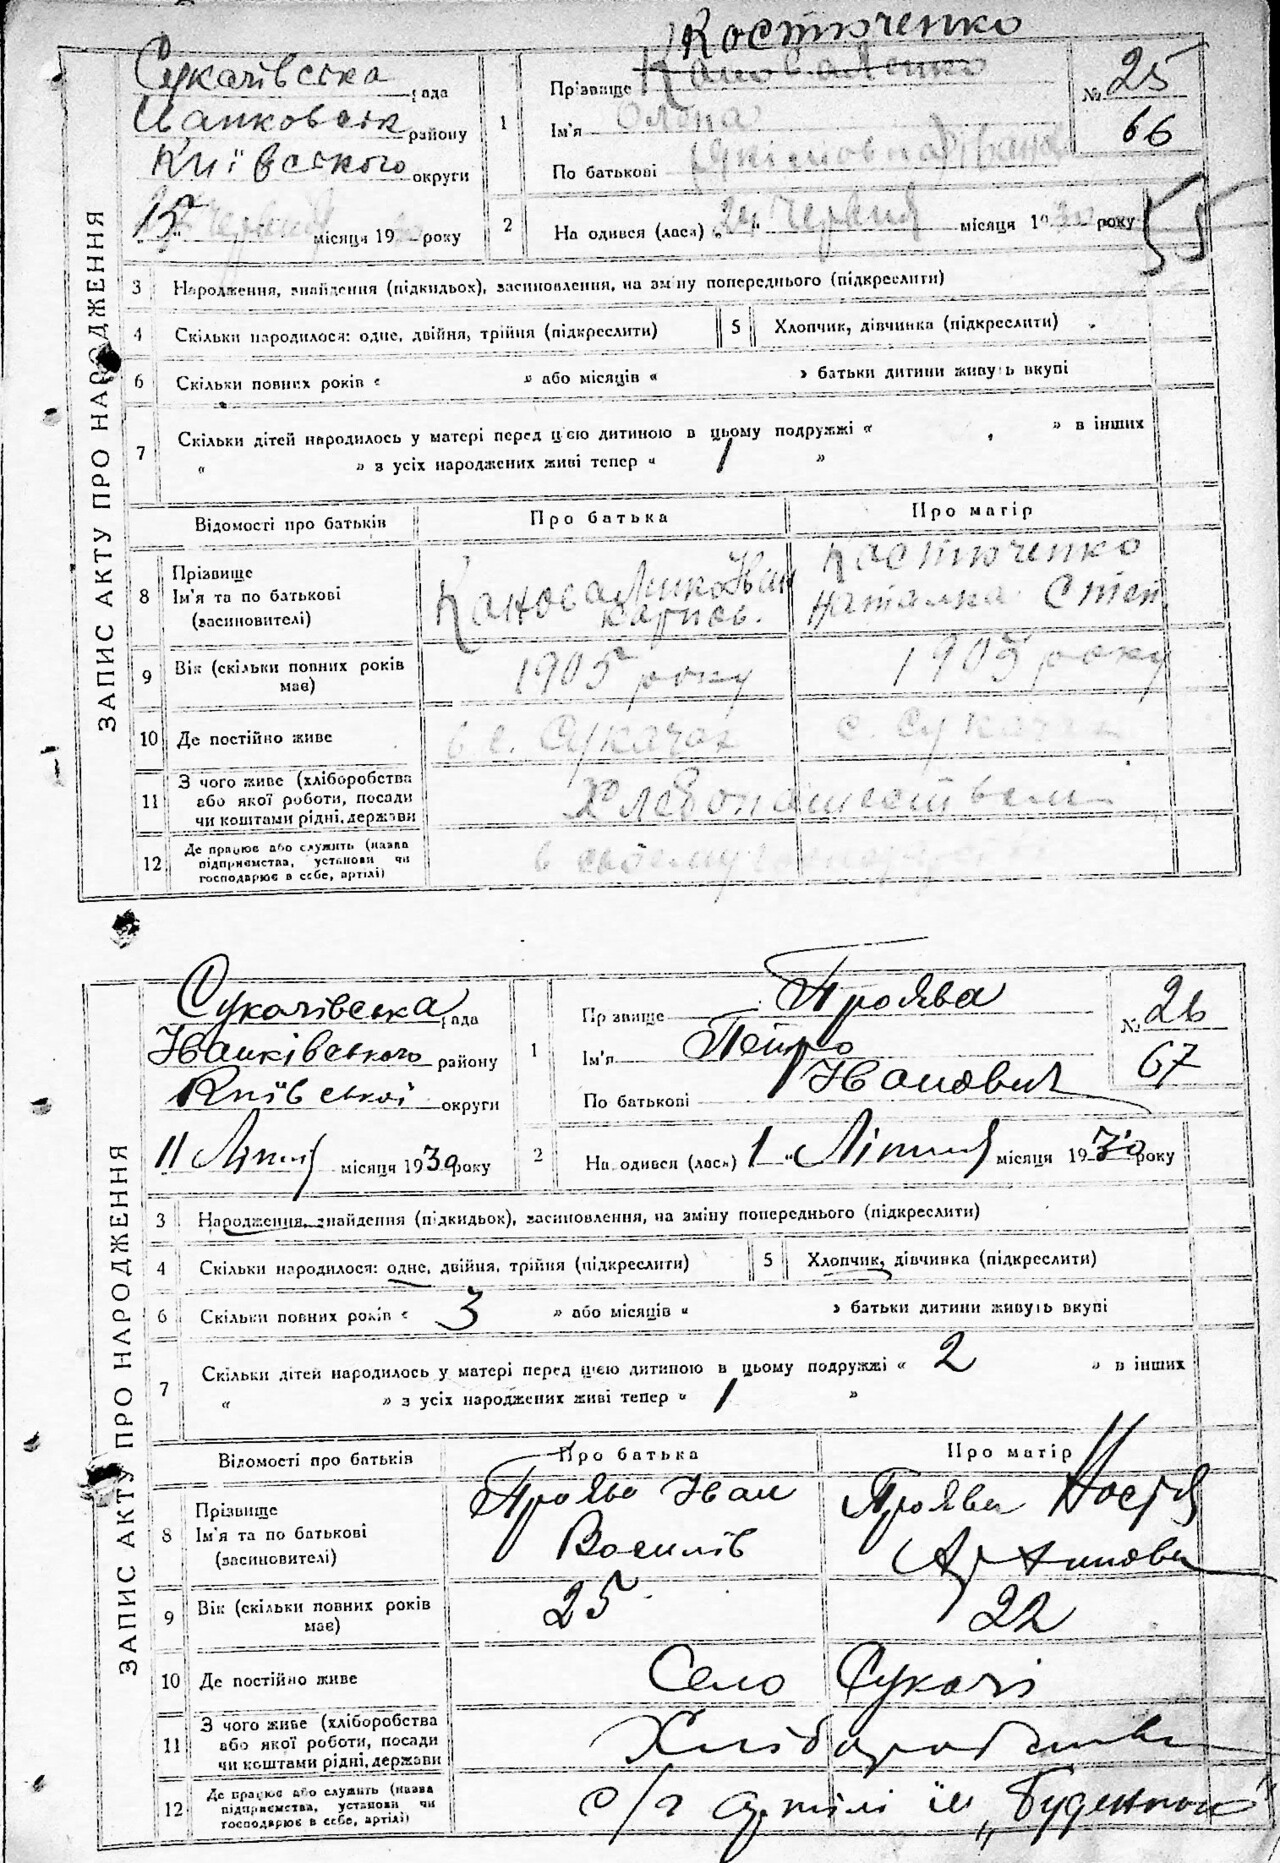 ЗАПИС АКТУ ПРО НАРОДЖЕННЯ
Сукачівська рада
району
Київського округи
15 Червня місяця 1930 року
1
Прізвище Костюченко
Коноваленко
Ім'я Олена
По батькові Іванов
№ 25
66
2
На одився (лася) „24“ Червня місяця 1930 року
55
3 Народження, знайдення (підкидьок), засиновлення, на зміну попереднього (підкреслити)
4 Скільки народилося: одне, двійня, трійня (підкреслити)
5 Хлопчик, дівчинка (підкреслити)
6 Скільки повних років « » або місяців « » батьки дитини живуть вкупі
7 Скільки дітей народилось у матері перед цією дитиною в цьому подружжі « » в інших
« » з усіх народжених живі тепер « 1 »
Відомості про батьків Про батька Про матір
8 Прізвище
Ім'я та по батькові
(засиновителі)
Іван
Костюченко
Наталка Степ
9 Вік (скільки повних років має)
1905 року 1905 року
10 Де постійно живе
в с. Сукачах с. Сукачах
11 З чого живе (хліборобства
або якої роботи, посади
чи коштами рідні, держави
Хлебопашеством
12 Де працює або служить (назва
підприємства, установи чи
господарює в себе, артілі)
в своему
ЗАПИС АКТУ ПРО НАРОДЖЕННЯ
Сукачівська рада
Іванківського району
Київської округи
11 Липня місяця 1930 року
1
Прізвище Проява
Ім'я Петро
По батькові Іванович
№ 26
67
2
На одився (лася) 1 „ Липня місяця 1930 року
3 Народження, знайдення (підкидьок), засиновлення, на зміну попереднього (підкреслити)
4 Скільки народилося: одне, двійня, трійня (підкреслити)
5 Хлопчик, дівчинка (підкреслити)
6 Скільки повних років « 3 » або місяців « » батьки дитини живуть вкупі
7 Скільки дітей народилось у матері перед цією дитиною в цьому подружжі « 2 » в інших
« » з усіх народжених живі тепер « 1 »
Відомості про батьків Про батька Про матір
8 Прізвище
Ім'я та по батькові
(засиновителі)
Проява Іван
Василів
Проява Настя
9 Вік (скільки повних років має)
25 22
10 Де постійно живе
Село Сукачі
11 З чого живе (хліборобства
або якої роботи, посади
чи коштами рідні, держави
12 Де працює або служить (назва
підприємства, установи чи
господарює в себе, артілі)
с/г артілі ім „Будённого“